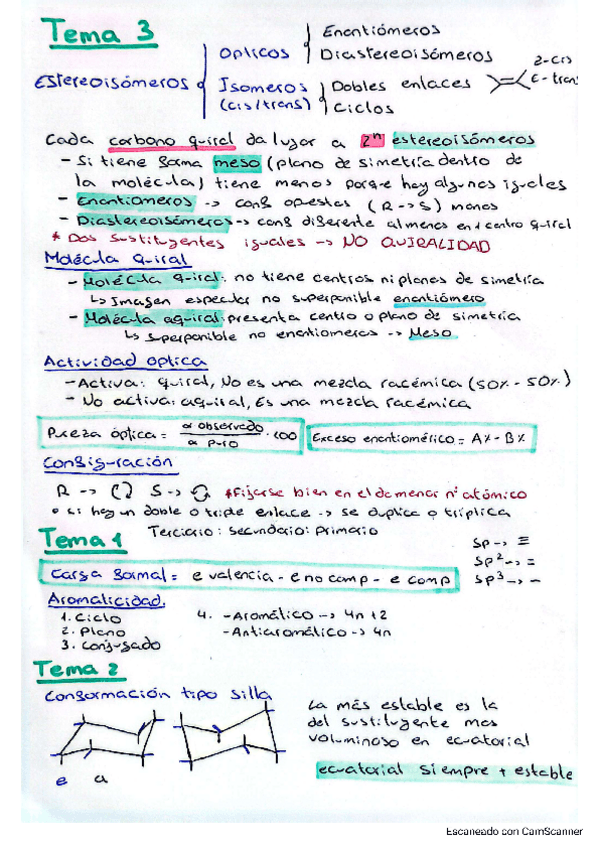 Tema 3
Estereoisómeros
Opticos
Enantiómeros
Diastereoisómeros
Isomeros (cis/trans)
Dobles enlaces
Z-cis
E-trans
Ciclos
Cada carbono quiral da lugar a 2ⁿ estereoisómeros
- Si tiene forma meso (plano de simetría dentro de
la molécula) tiene menos porque hay algunos iguales
- Enantiomeros -> conf opuestas (R->S) manos
- Diastereoisómeros -> conf diferente al menos en 1 centro quiral
* Dos sustituyentes iguales -> NO QUIRALIDAD
Molécula quiral
- Molécula quiral: no tiene centros ni planos de simetría
↳ Imagen especular no superponible enantiómero
- Molécula aquiral: presenta centro o plano de simetría
↳ superponible no enantiomeros -> Meso
Actividad optica
- Activa: quiral, No es una mezcla racémica (50% - 50%)
- No activa: aquiral, Es una mezcla racémica
Pureza óptica = α observado / α puro · 100
Exceso enantiomérico = A% - B%
Configuración
R -> ↻ S -> ↺ *Fijarse bien en el de menor nº atómico
o si hay un doble o triple enlace -> se duplica o triplica
Terciario : Secundario : Primario
Tema 1
Sp -> ≡
Sp² -> =
Sp³ -> -
Carga formal = e valencia - e no comp - e comp
Aromaticidad.
1. Ciclo
2. Plano
3. Conjugado
4. - Aromático -> 4n+2
- Antiaromático -> 4n
Tema 2
Conformación tipo silla
La más estable es la
del sustituyente mas
voluminoso en ecuatorial
ecuatorial siempre + estable
e a
Escaneado con CamScanner